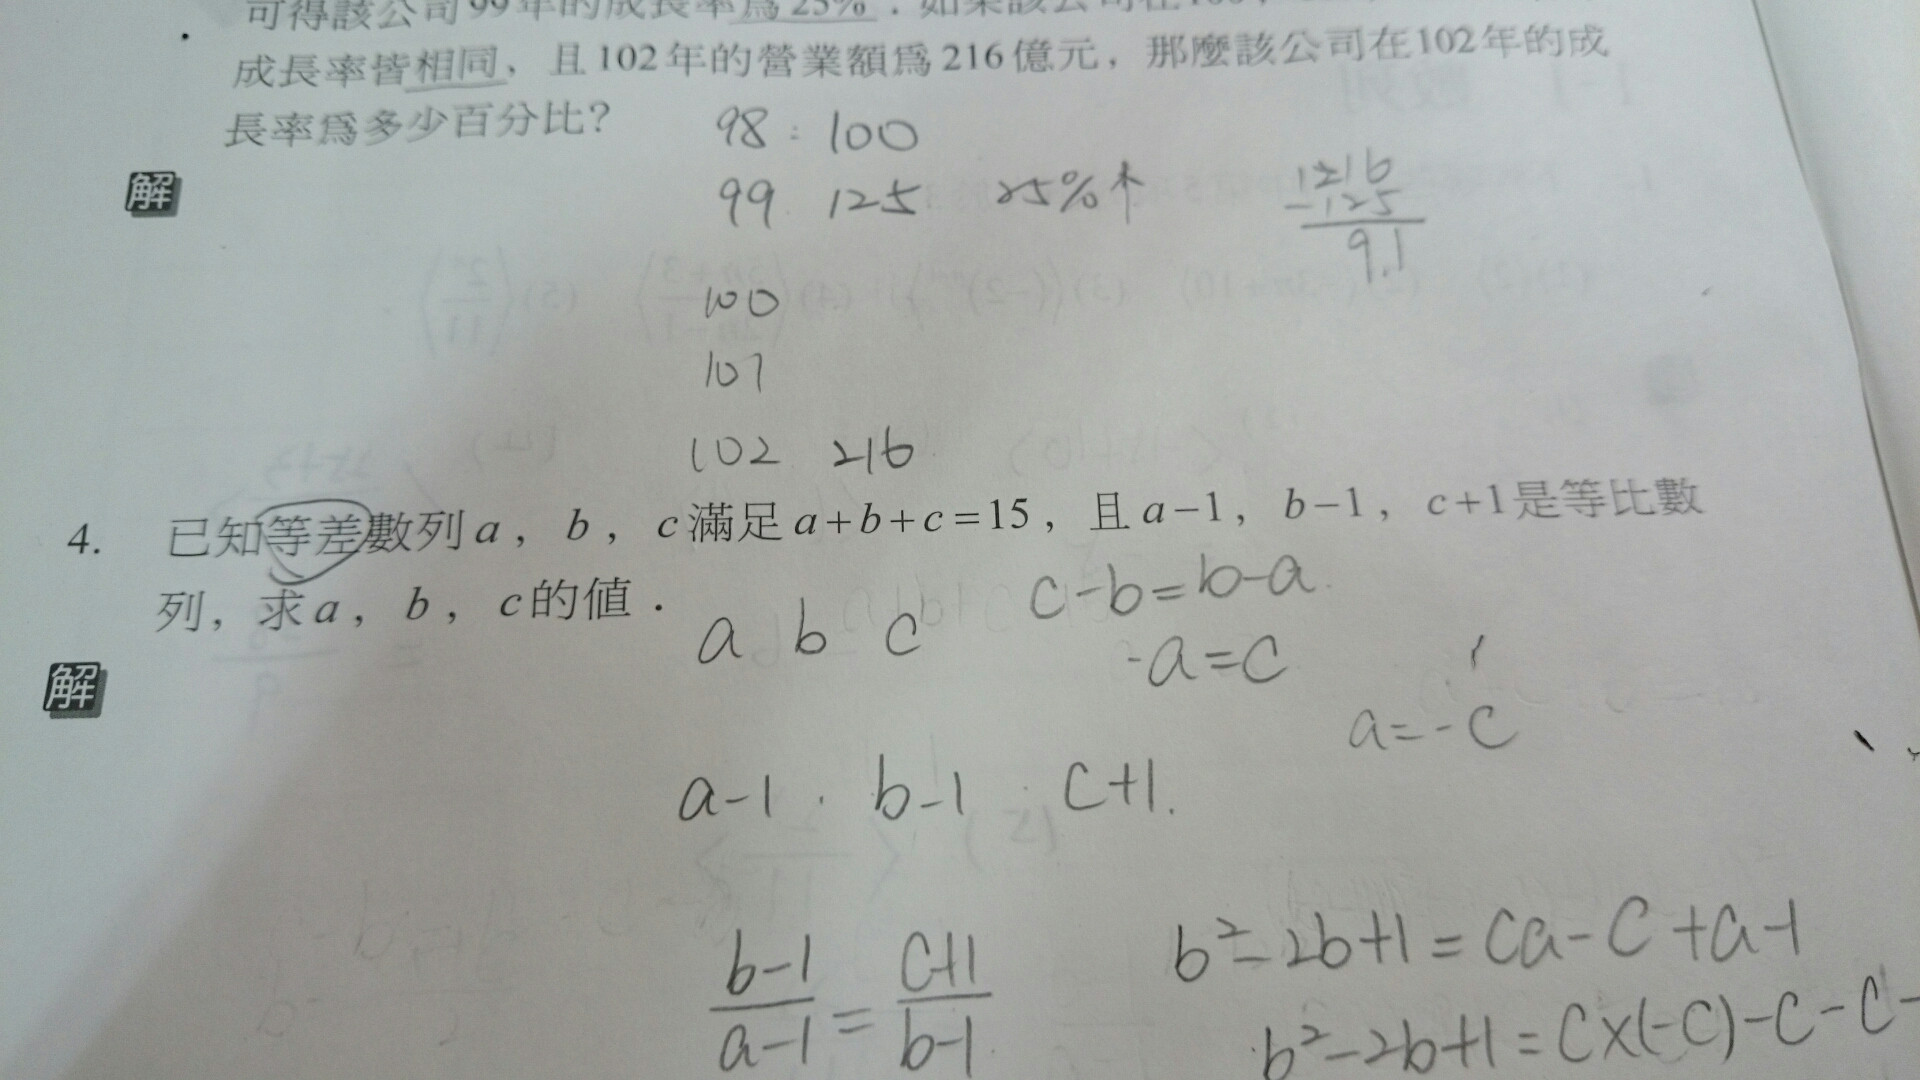 可得該公司99年的成長率為25%．如果該公司在100，
成長率皆相同，且102年的營業額為216億元，那麼該公司在102年的成
長率為多少百分比？
98 : 100
解
99 125 25%↑
1216
-125
9.1
100
101
102 216
4. 已知等差數列a，b，c滿足a+b+c=15，且a-1，b-1，c+1是等比數
列，求a，b，c的值．
a b c
c-b=b-a
-a=c
a=-c
解
a-1 . b-1 . c+1.
b-1/a-1 = c+1/b-1
b²-2b+1=ca-c+a-1
b²-2b+1=c×(-c)-c-c-